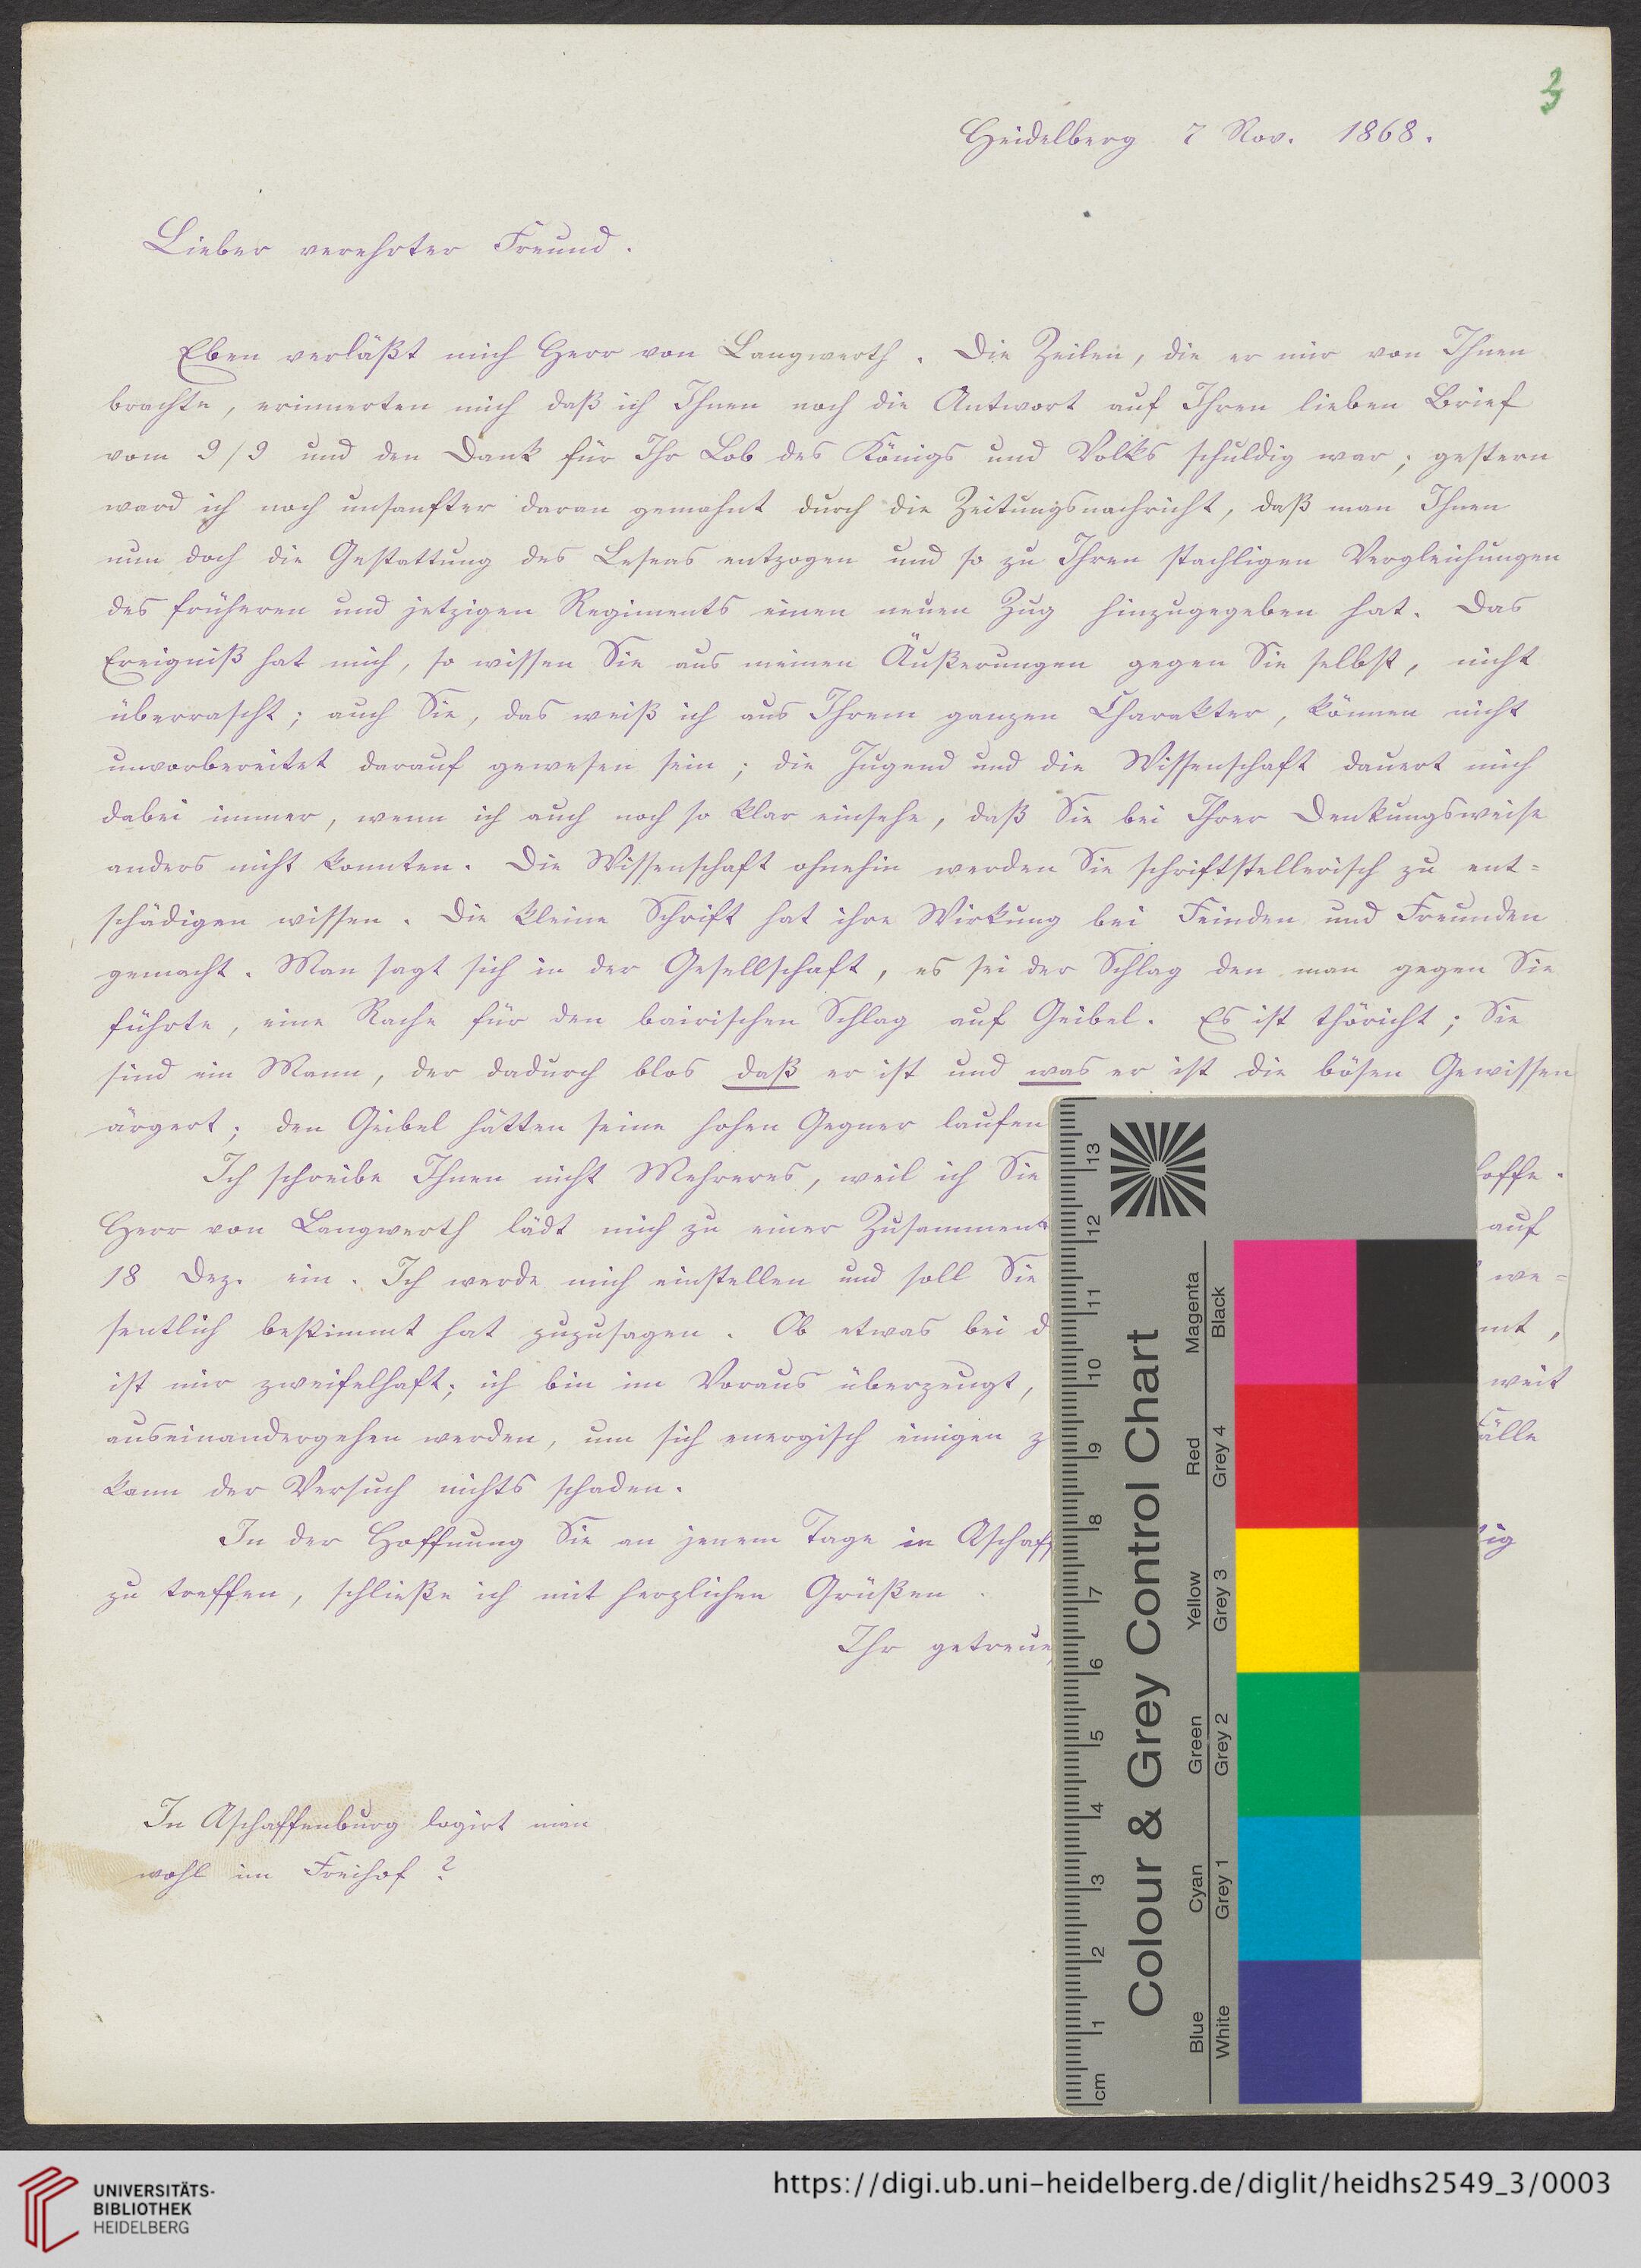 3
Heidelberg 7 Nov. 1868.
Lieber verehrter Freund.
Eben verläßt mich Herr von Langwerth. Die Zeilen, die er mir von Ihnen
brachte, erinnerten mich daß ich Ihnen noch die Antwort auf Ihren lieben Brief
vom 9/9 und den Dank für Ihr Lob des Königs und Volks schuldig war; gestern
ward ich noch unsanfter daran gemahnt durch die Zeitungsnachricht, daß man Ihnen
nun doch die Gestattung des Lesens entzogen und so zu Ihren stachligen Vergleichungen
des früheren und jetzigen Regiments einen neuen Zug hinzugegeben hat. Das
Ereigniß hat mich, so wissen Sie aus meinen Äußerungen gegen Sie selbst, nicht
überrascht; auch Sie, das weiß ich aus Ihrem ganzen Charakter, können nicht
unvorbereitet darauf gewesen sein; die Jugend und die Wissenschaft dauert mich
dabei immer, wenn ich auch noch so klar einsehe, daß Sie bei Ihrer Denkungsweise
anders nicht konnten. Die Wissenschaft ohnehin werden Sie schriftstellerisch zu ent=
schädigen wissen. Die kleine Schrift hat ihre Wirkung bei Feinden und Freunden
gemacht. Man sagt sich in der Gesellschaft, es sei der Schlag den man gegen Sie
führte, eine Rache für den bairischen Schlag auf Geibel. Es ist thöricht; Sie
sind ein Mann, der dadurch blos daß er ist und was er ist die bösen Gewissen
ärgert; den Geibel hätten seine hohen Gegner laufen
Ich schreibe Ihnen nicht Mehreres, weil ich Sie hoffe.
Herr von Langwerth lädt mich zu einer Zusammenk auf
18 Dez. ein. Ich werde mich einstellen und soll Sie we=
sentlich bestimmt hat zuzusagen. Ob etwas bei d mt,
ist mir zweifelhaft; ich bin im Voraus überzeugt, weit
auseinandergehen werden, um sich energisch einigen z älle
kann der Versuch nichts schaden.
In der Hoffnung Sie an jenem Tage in Aschaff ig
zu treffen, schließe ich mit herzlichen Grüßen.
Ihr getreue
In Aschaffenburg logirt man
wohl im Freihof?
Colour & Grey Control Chart
Magenta Black
Red Grey 4
Yellow Grey 3
Green Grey 2
Cyan Grey 1
Blue White
13
12
11
10
9
8
7
6
5
4
3
2
1
cm
UNIVERSITÄTS-
BIBLIOTHEK
HEIDELBERG
https://digi.ub.uni-heidelberg.de/diglit/heidhs2549_3/0003